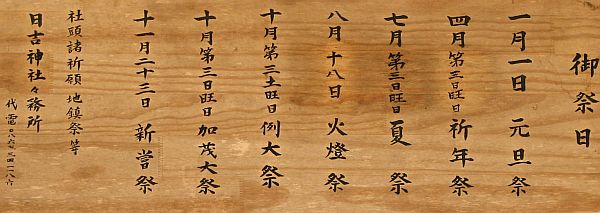 御祭日
一月一日 元旦祭
四月第三日旺日 祈年祭
七月第三日旺日 夏祭
八月十八日 火燈祭
十月第三土旺日 例大祭
十月第三日旺日 加茂大祭
十一月二十三日 新嘗祭
社頭諸祈願 地鎮祭等
日吉神社々務所
代電